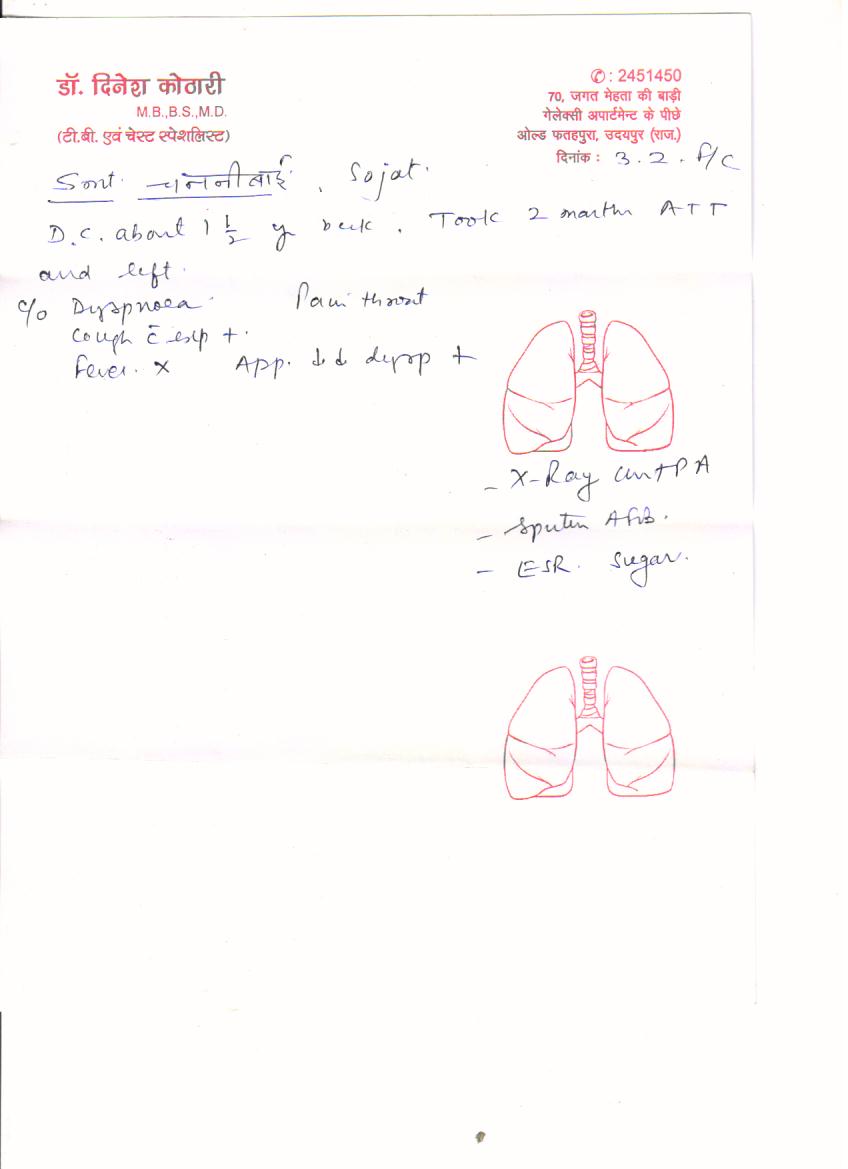 डॉ. दिनेश कोठारी
M.B.,B.S.,M.D.
(टी.बी. एवं चेस्ट स्पेशलिस्ट)
✆ : 2451450
70, जगत मेहता की बाड़ी
गेलेक्सी अपार्टमेन्ट के पीछे
ओल्ड फतहपुरा, उदयपुर (राज.)
दिनांक : 3.2.
Smt. बाई, Sojat.
D.C. about 1 1/2 y back. Took 2 months ATT
and left.
c/o Dyspnoea. Pain throat
Cough c̄ exp +.
Fever. x App. ↓↓ +
- X-Ray PA
- Sputum AFB.
- ESR. Sugar.